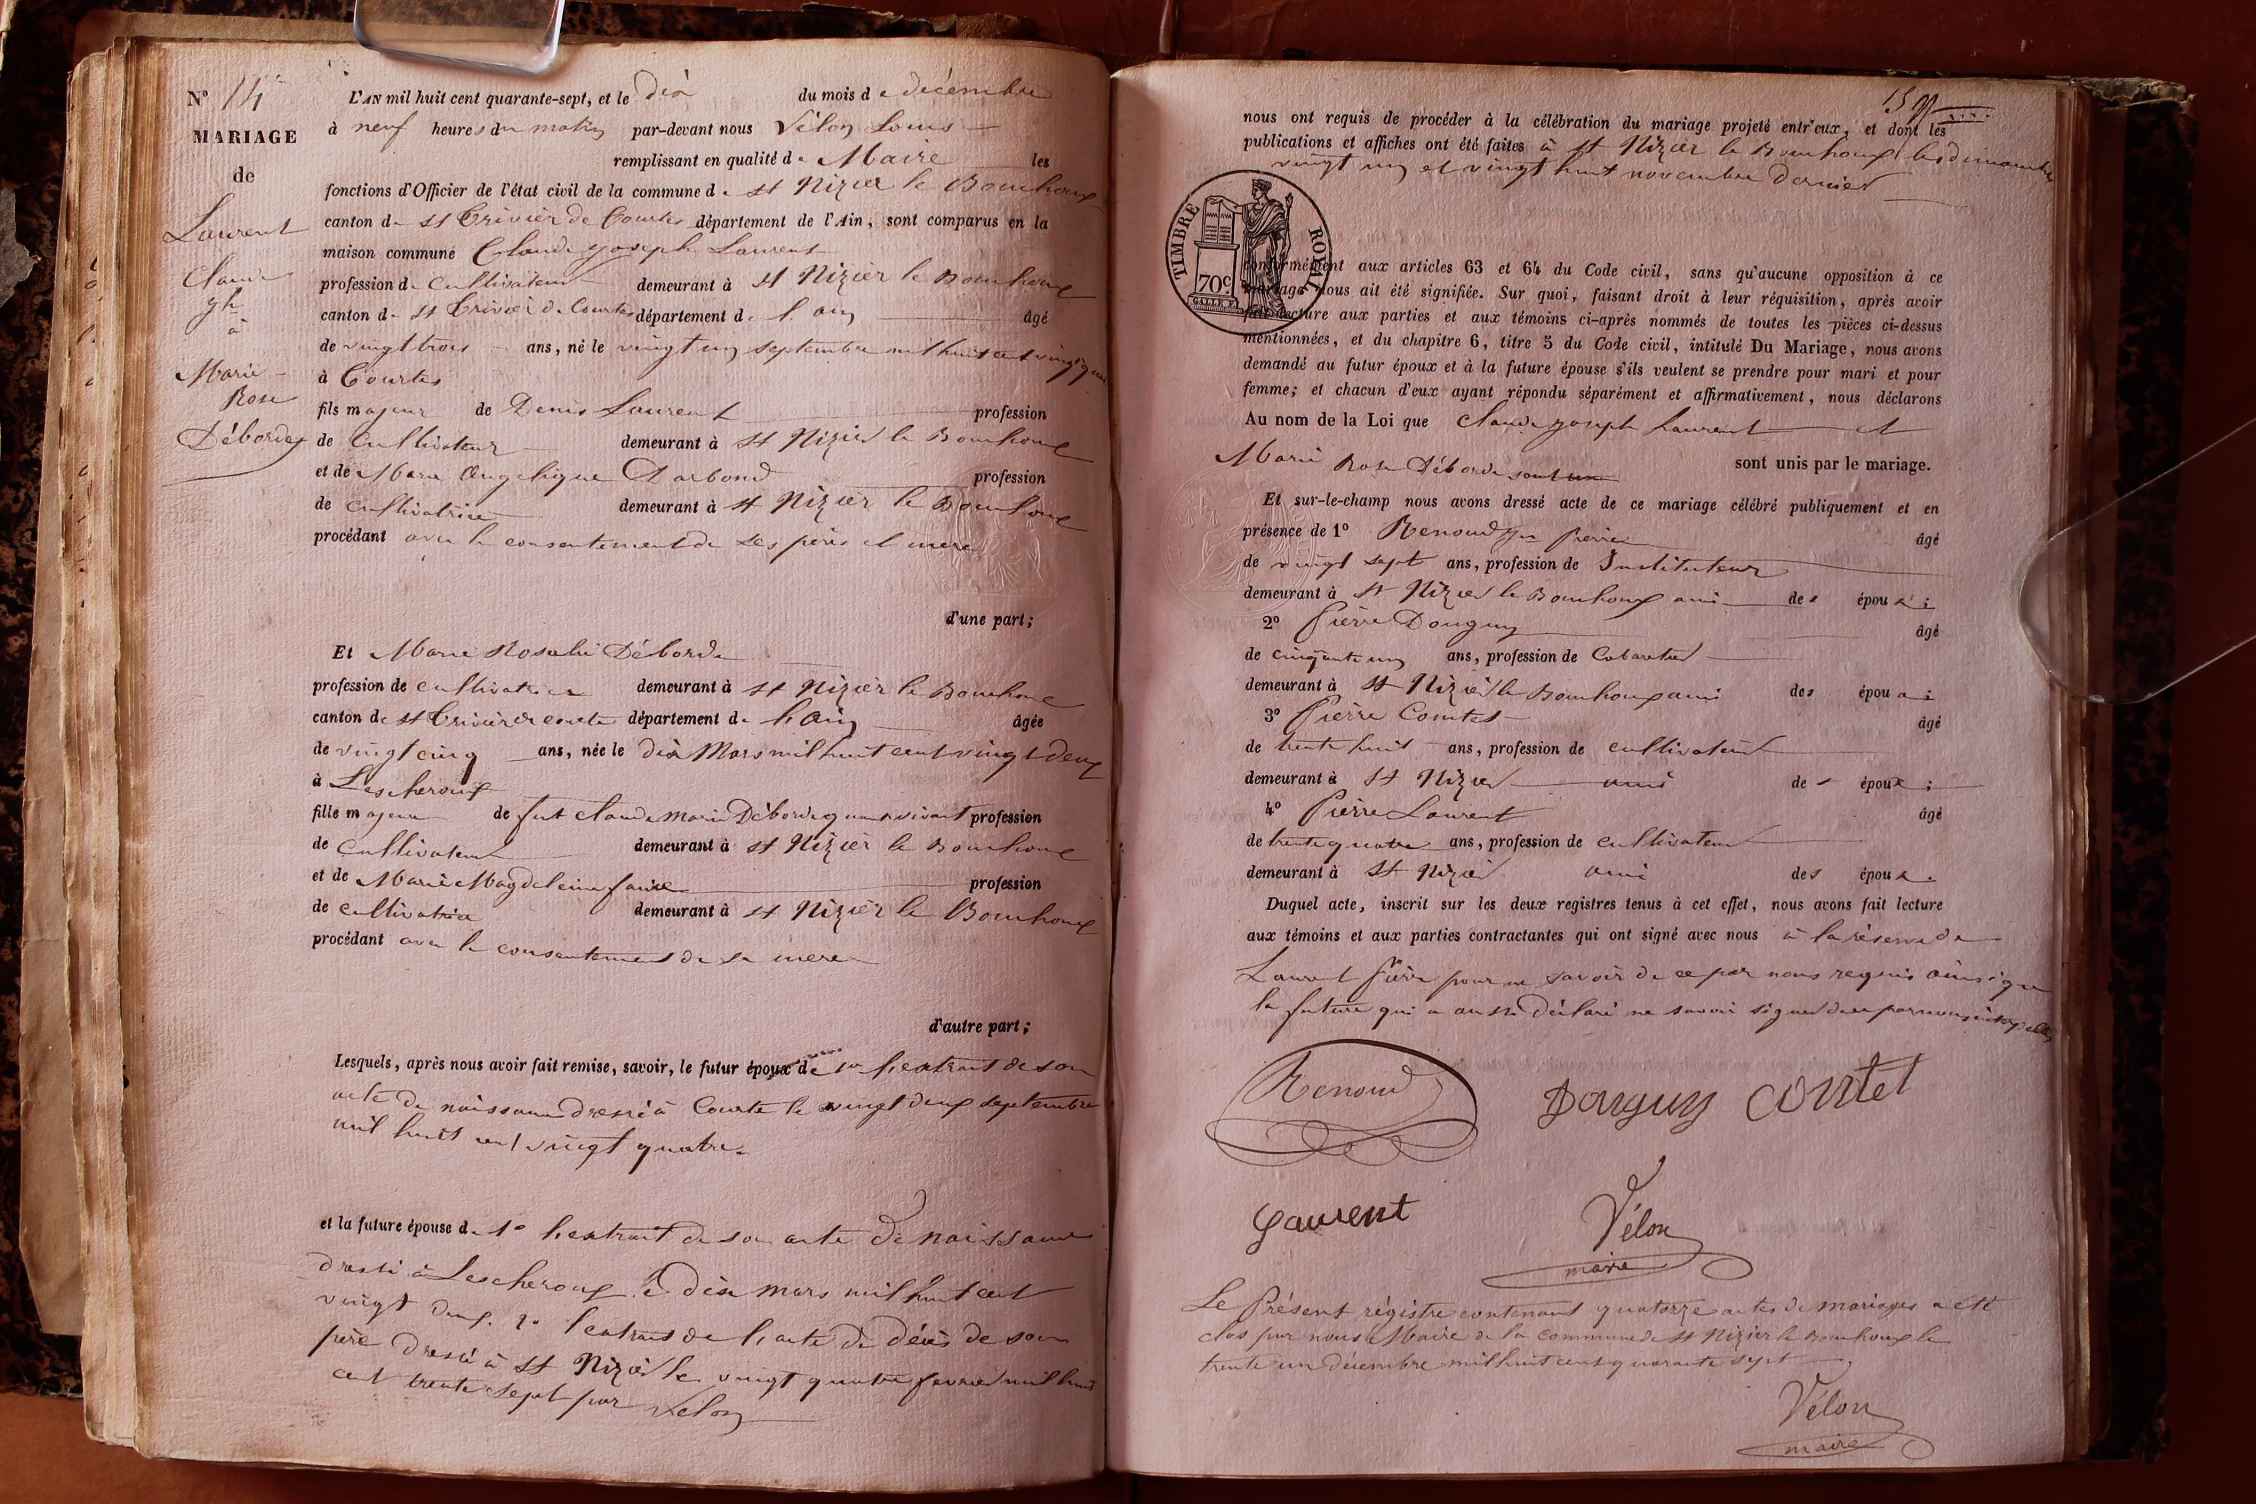 N° 14
MARIAGE
de
Laurent
Claude
jh
à
Marie
Rose
Débordes
L'AN mil huit cent quarante-sept, et le dix du mois de décembre
à neuf heures du matin par-devant nous Vélon Louis
remplissant en qualité de Maire les
fonctions d'Officier de l'état civil de la commune de St Nizier le Bouchoux
canton de St Trivier de Courtes département de l'Ain, sont comparus en la
maison commune Claude joseph Laurent
profession de cultivateur demeurant à St Nizier le Bouchoux
canton de St Trivier de Courtes département de l'ain âgé
de vingt trois ans, né le vingt un septembre mil huit cent vingt quatre
à Courtes
fils majeur de Denis Laurent profession
de cultivateur demeurant à St Nizier le Bouchoux
et de Marie Angelique Darbond profession
de cultivatrice demeurant à St Nizier le Bouchoux
procédant avec le consentement de ses père et mère
d'une part;
Et Marie Rosalie Déborde
profession de cultivatrice demeurant à St Nizier le Bouchoux
canton de St Trivier de courte département de l'Ain âgée
de vingt cinq ans, née le dix Mars mil huit cent vingt deux
à Lescheroux
fille majeure de fut claude marie Déborde quant vivant profession
de cultivateur demeurant à St Nizier le Bouchoux
et de Marie Magdeleine profession
de cultivatrice demeurant à St Nizier le Bouchoux
procédant avec le consentement de sa mère
d'autre part;
Lesquels, après nous avoir fait remise, savoir, le futur époux de 1° l'extrait de son
acte de naissance dressé à Courte le vingt deux septembre
mil huit cent vingt quatre
et la future épouse de 1° l'extrait de son acte de naissance
dressé à Lescheroux le dix mars mil huit cent
vingt deux. 2° l'extrait de l'acte de décès de son
père dressé à St Nizier le vingt quatre fevrier mil huit
cent trente sept par Velon
nous ont requis de procéder à la célébration du mariage projeté entr'eux, et dont les
publications et affiches ont été faites à St Nizier le Bouchoux les dimanche
vingt un et vingt huit novembre dernier
TIMBRE ROYAL
70c
conformément aux articles 63 et 64 du Code civil, sans qu'aucune opposition à ce
mariage nous ait été signifiée. Sur quoi, faisant droit à leur réquisition, après avoir
fait lecture aux parties et aux témoins ci-après nommés de toutes les pièces ci-dessus
mentionnées, et du chapitre 6, titre 5 du Code civil, intitulé Du Mariage, nous avons
demandé au futur époux et à la future épouse s'ils veulent se prendre pour mari et pour
femme; et chacun d'eux ayant répondu séparément et affirmativement, nous déclarons
Au nom de la Loi que Claude joseph Laurent et
Marie Rose Déborde sont unis par le mariage.
Et sur-le-champ nous avons dressé acte de ce mariage célébré publiquement et en
présence de 1° Renoud pierre âgé
de vingt sept ans, profession de Instituteur
demeurant à St Nizier le Bouchoux ami des époux;
2° Pierre Donguy âgé
de cinquante un ans, profession de Cabaretier
demeurant à St Nizier le Bouchoux ami des époux;
3° Pierre Comtet âgé
de trente huit ans, profession de cultivateur
demeurant à St Nizier ami des époux;
4° Pierre Laurent âgé
de trente quatre ans, profession de cultivateur
demeurant à St Nizier ami des époux.
Duquel acte, inscrit sur les deux registres tenus à cet effet, nous avons fait lecture
aux témoins et aux parties contractantes qui ont signé avec nous à la réserve de
Laurent Pierre pour ne savoir de ce par nous requis ainsi que
la future qui a aussi déclaré ne savoir signer de ce par nous
Renoud Donguy Comtet
Laurent Vélon
maire
Le Présent régistre contenant quatorze actes de mariages a été
clos par nous Maire de la commune de St Nizier le Bouchoux le
trente un décembre mil huit cent quarante sept
Vélon
maire